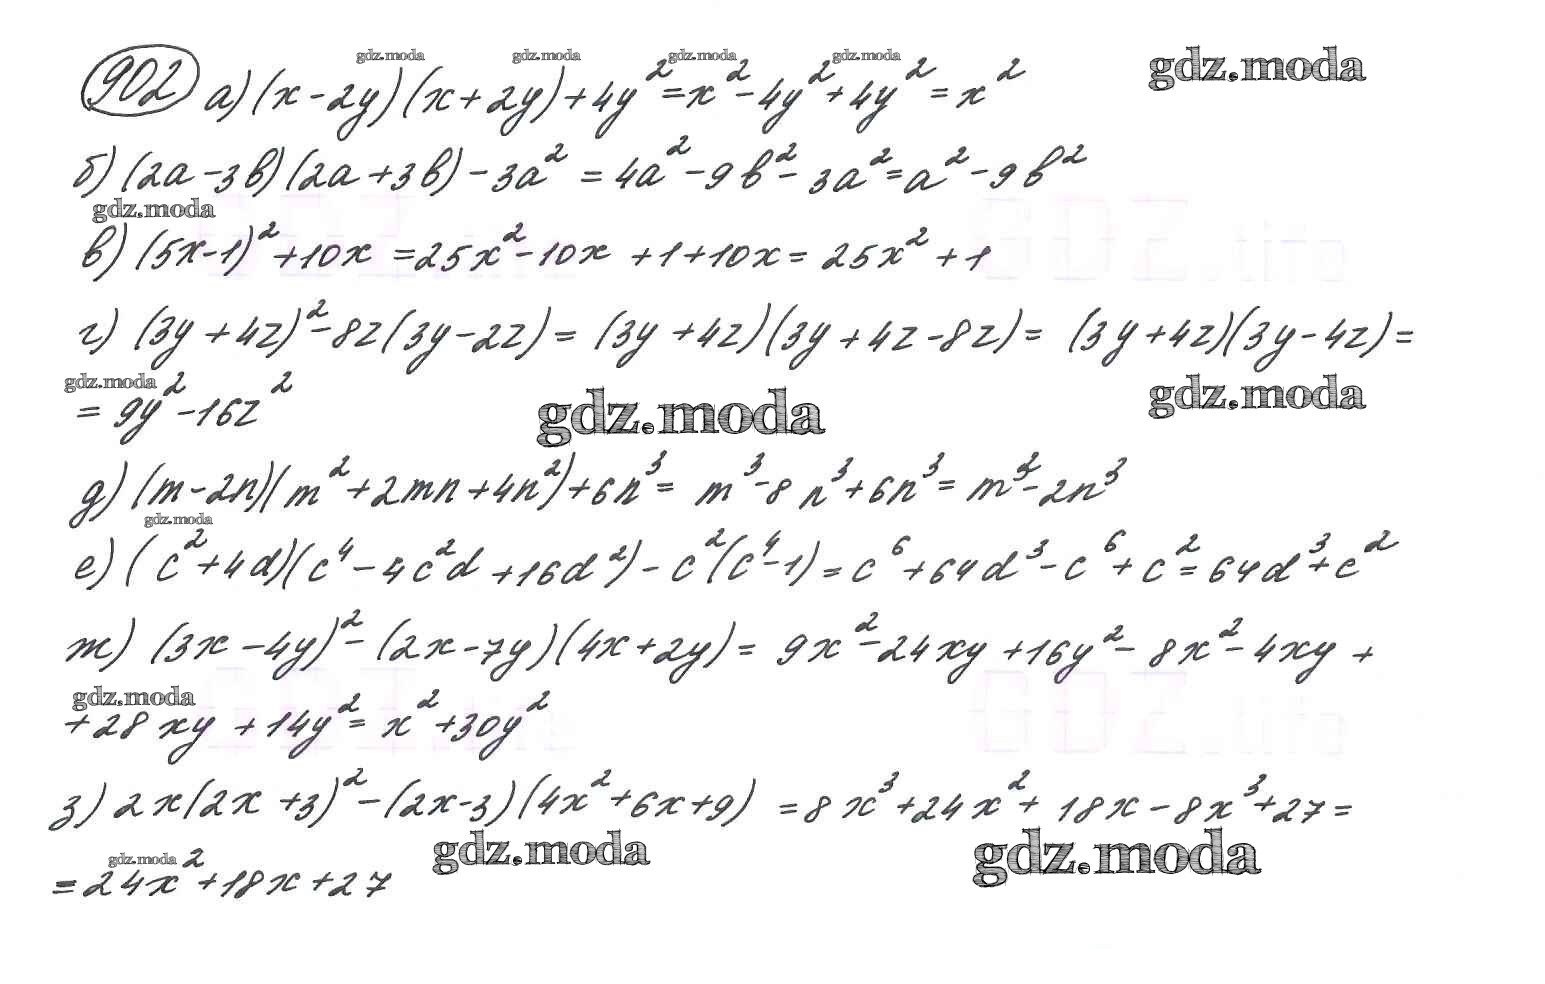 902 а) (x-2y)(x+2y)+4y²=x²-4y²+4y²=x²
б) (2a-3b)(2a+3b)-3a²=4a²-9b²-3a²=a²-9b²
в) (5x-1)²+10x=25x²-10x+1+10x=25x²+1
г) (3y+4z)²-8z(3y-2z)=(3y+4z)(3y+4z-8z)=(3y+4z)(3y-4z)=
=9y²-16z²
д) (m-2n)(m²+2mn+4n²)+6n³=m³-8n³+6n³=m³-2n³
е) (c²+4d)(c⁴-4c²d+16d²)-c²(c⁴-1)=c⁶+64d³-c⁶+c²=64d³+c²
ж) (3x-4y)²-(2x-7y)(4x+2y)=9x²-24xy+16y²-8x²-4xy+
+28xy+14y²=x²+30y²
з) 2x(2x+3)²-(2x-3)(4x²+6x+9)=8x³+24x²+18x-8x³+27=
=24x²+18x+27
gdz.moda
gdz.moda
gdz.moda
gdz.moda
gdz.moda
gdz.moda
gdz.moda
gdz.moda
gdz.moda
gdz.moda
gdz.moda
gdz.moda
gdz.moda
gdz.moda
GDZ.life
GDZ.life
GDZ.life
GDZ.life